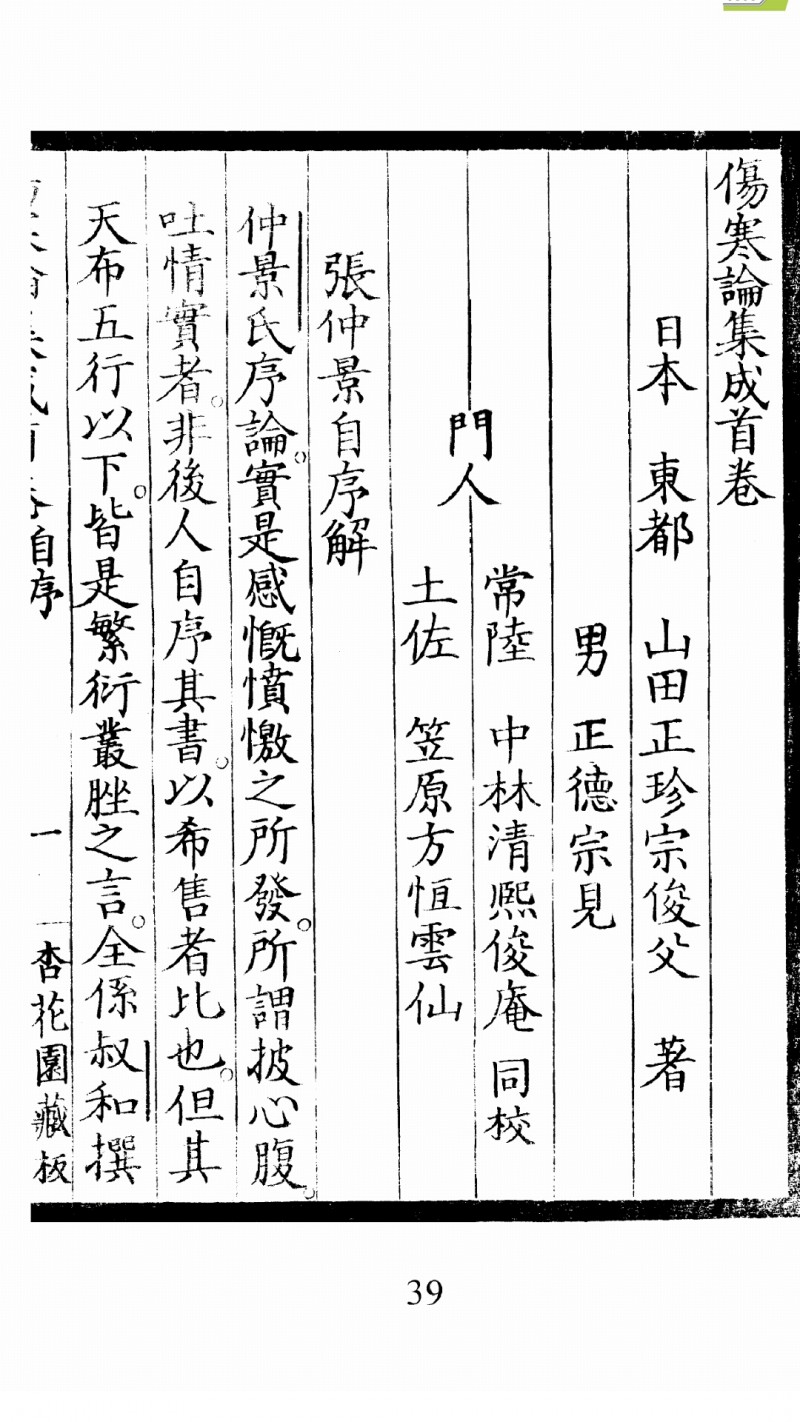 傷寒論集成首卷
日本　東都　山田正珍宗俊父　著
男　正德宗見
門人
常陸　中林清熙俊庵　同校
土佐　笠原方恒雲仙
張仲景自序解
仲景氏序論。實是感慨憤懣之所發。所謂披心腹。
吐情實者。非後人自序其書。以希售者比也。但其
天布五行以下。皆是繁衍叢脞之言。全係叔和撰
自序
一
杏花園藏板
39